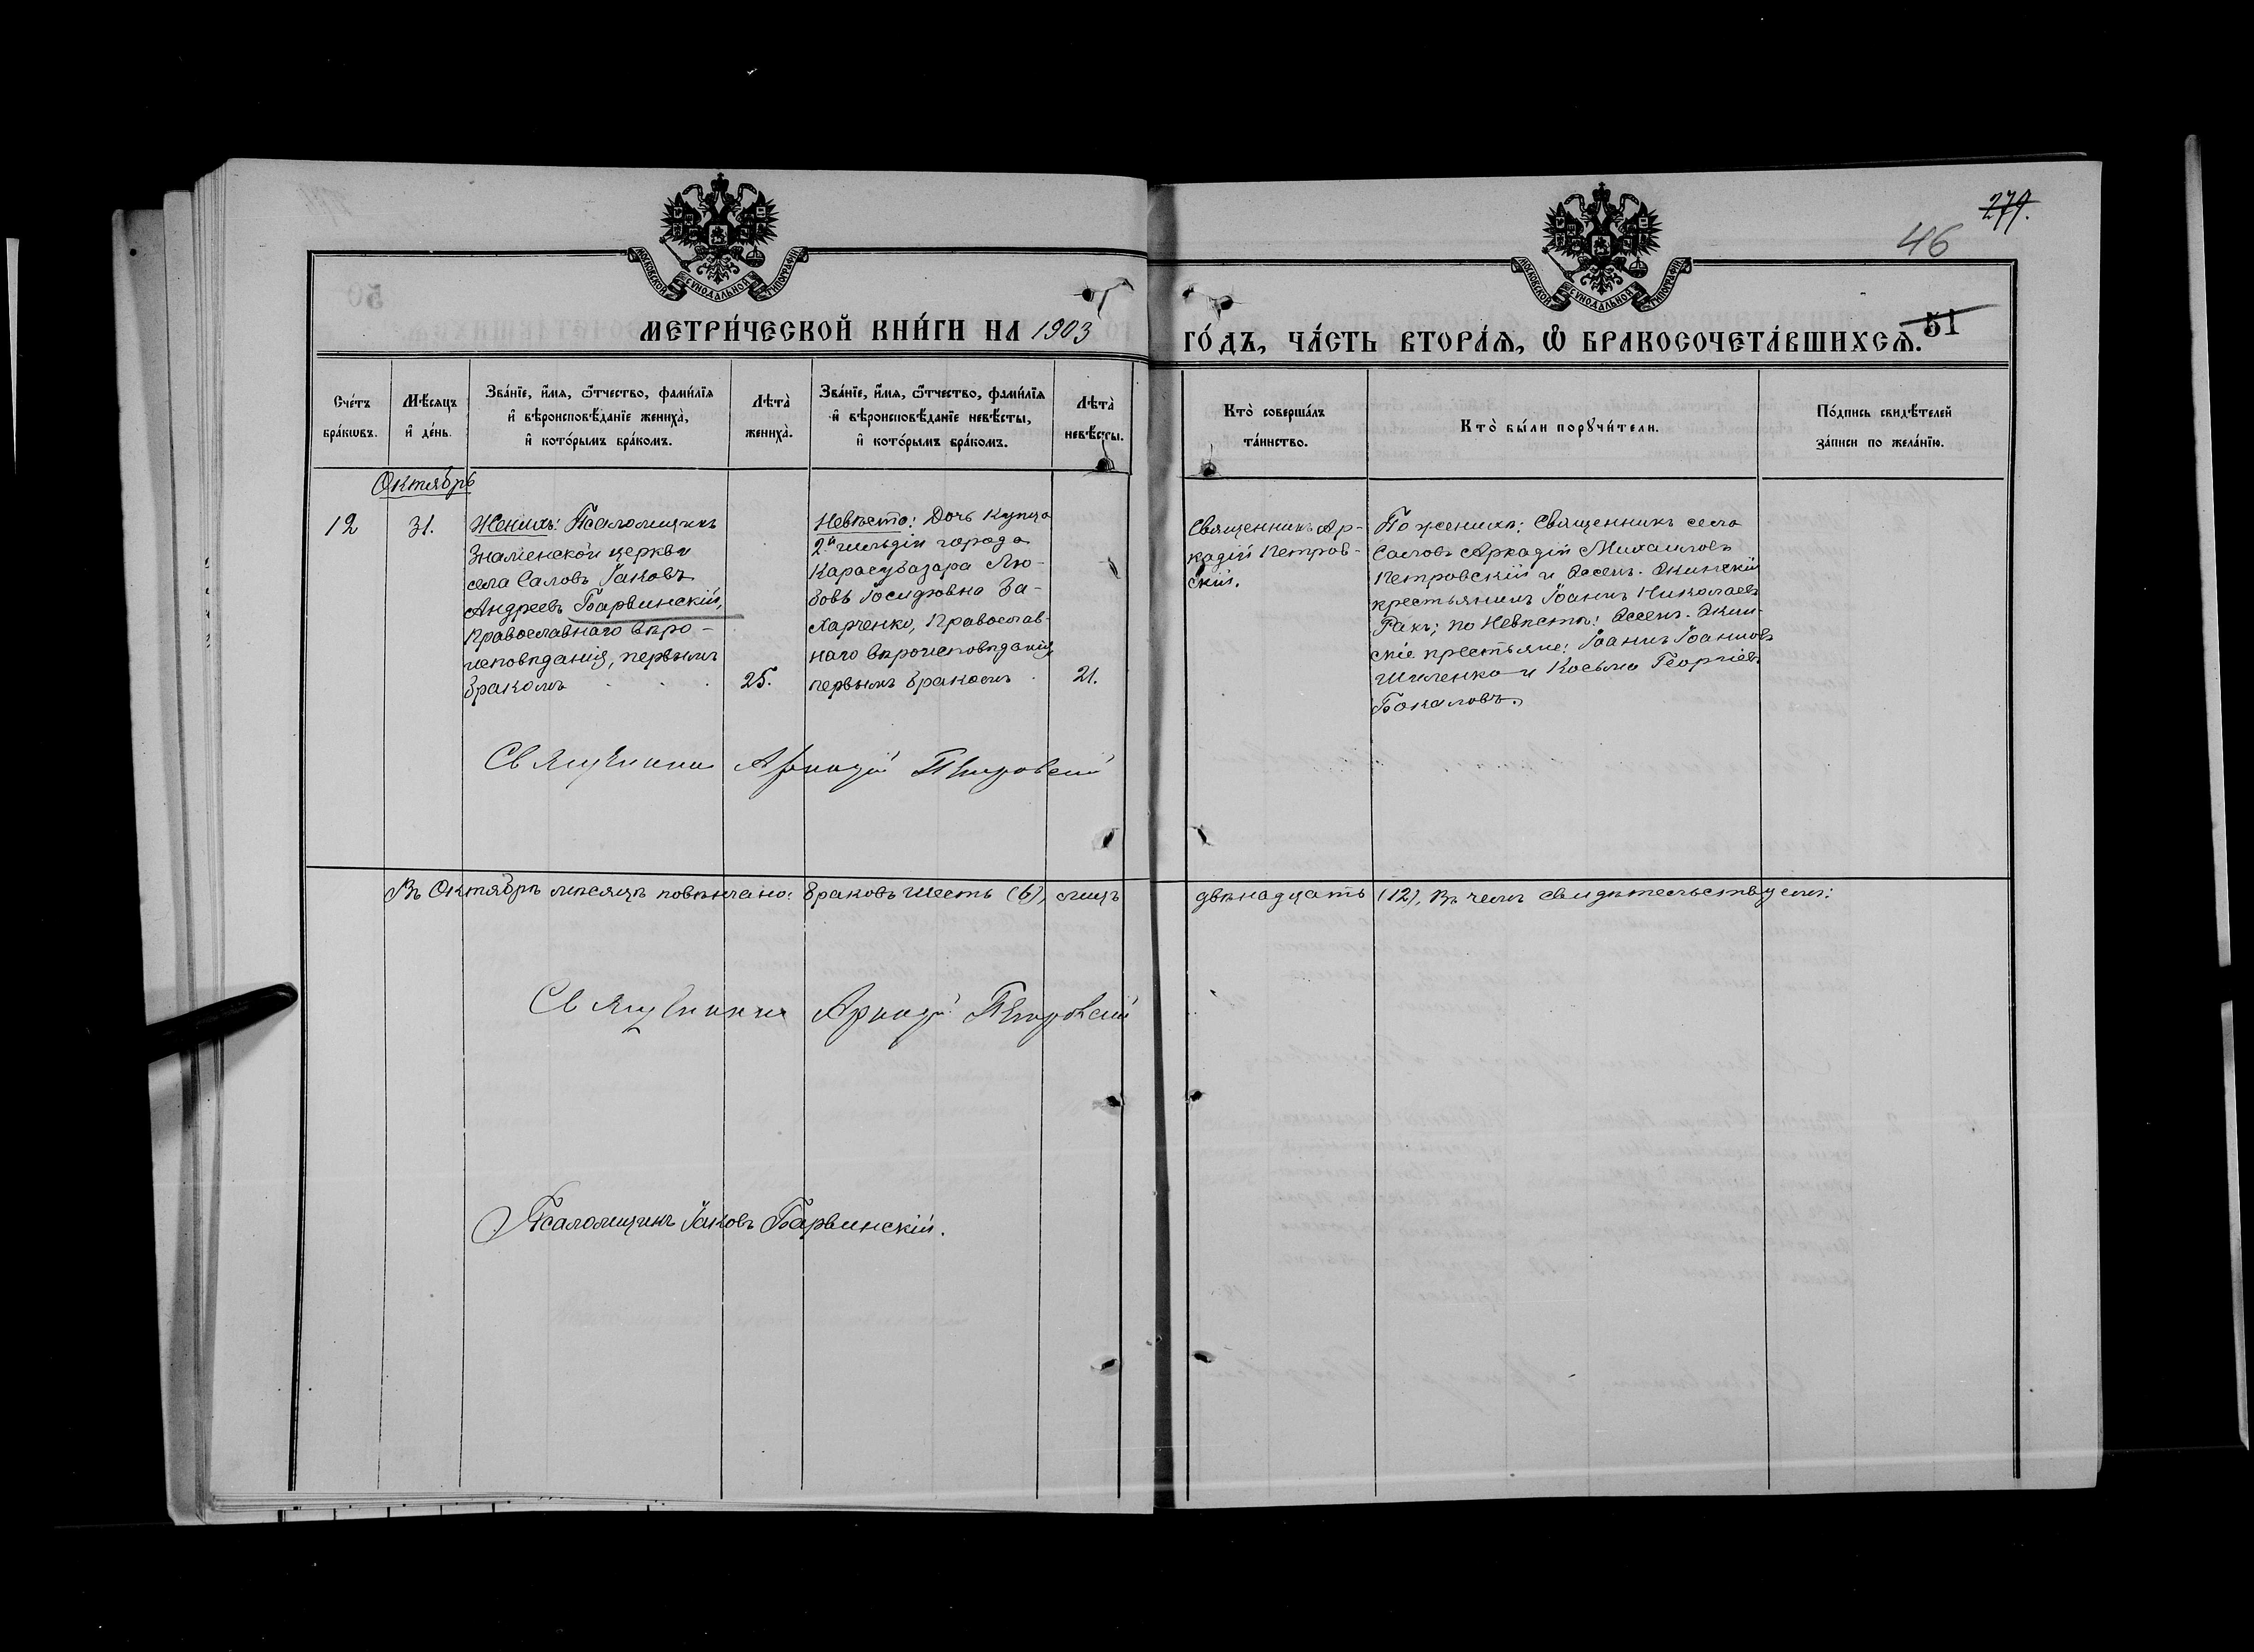 279.
46
МОСКОВСКОЙ СѴНОДАЛЬНОЙ ТИПОГРАФІИ
МОСКОВСКОЙ СѴНОДАЛЬНОЙ ТИПОГРАФІИ
МЕТРИ́ЧЕСКОЙ КНИ́ГИ НА 1903
ГО́ДЪ, ЧА́СТЬ ВТОРА́Я, Ѡ҆ БРАКОСОЧЕТА́ВШИХСЯ.
51
Сче́тъ
бра́кѡвъ.
Мѣ́сяцъ
и҆ де́нь.
Зва́нїе, и҆́мя, ѻ҆́тчество, фами́лїя
и҆ вѣроисповѣ́данїе жениха̀,
и҆ кото́рымъ бра́комъ.
Лѣта̀
жениха̀.
Зва́нїе, и҆́мя, ѻ҆́тчество, фами́лїя
и҆ вѣроисповѣ́данїе невѣ́сты,
и҆ кото́рымъ бра́комъ.
Лѣта̀
невѣ́сты.
Кто̀ соверша́лъ
та́инство.
Кто̀ бы́ли порꙋчи́тели.
По́дпись свидѣ́телей
за́писи по жела́нїю.
Октябрь
12
31.
Женихъ: Псаломщикъ
Знаменской церкви
села Саловъ Іаковъ
Андреевъ Барвинскій,
Православнаго вѣро-
исповѣданія, первымъ
бракомъ
25.
Невѣста: Дочь купца
2й гильдіи города
Карасубазара Лю-
бовь Іосифовна За-
харченко, Православ-
наго вѣроисповѣданія,
первымъ бракомъ
21.
Священникъ Ар-
кадій Петров-
скій.
По женихѣ: Священникъ села
Саловъ Аркадій Михаиловъ
Петровскій и Ассен. Экинскій
крестьянинъ Іоаннъ Николаевъ
Ракъ; по Невѣстѣ: Ассен. Экин-
скіе крестьяне: Іоаннъ Іоанновъ
Шиленко и Косьма Георгіевъ
Бокаловъ.
Священникъ Аркадій Петровскій
Въ Октябрѣ мѣсяцѣ повѣнчано: браковъ шесть (6), лицъ двѣнадцать (12), въ чемъ свидѣтельствуемъ:
Священникъ Аркадій Петровскій
Псаломщикъ Іаковъ Барвинскій.